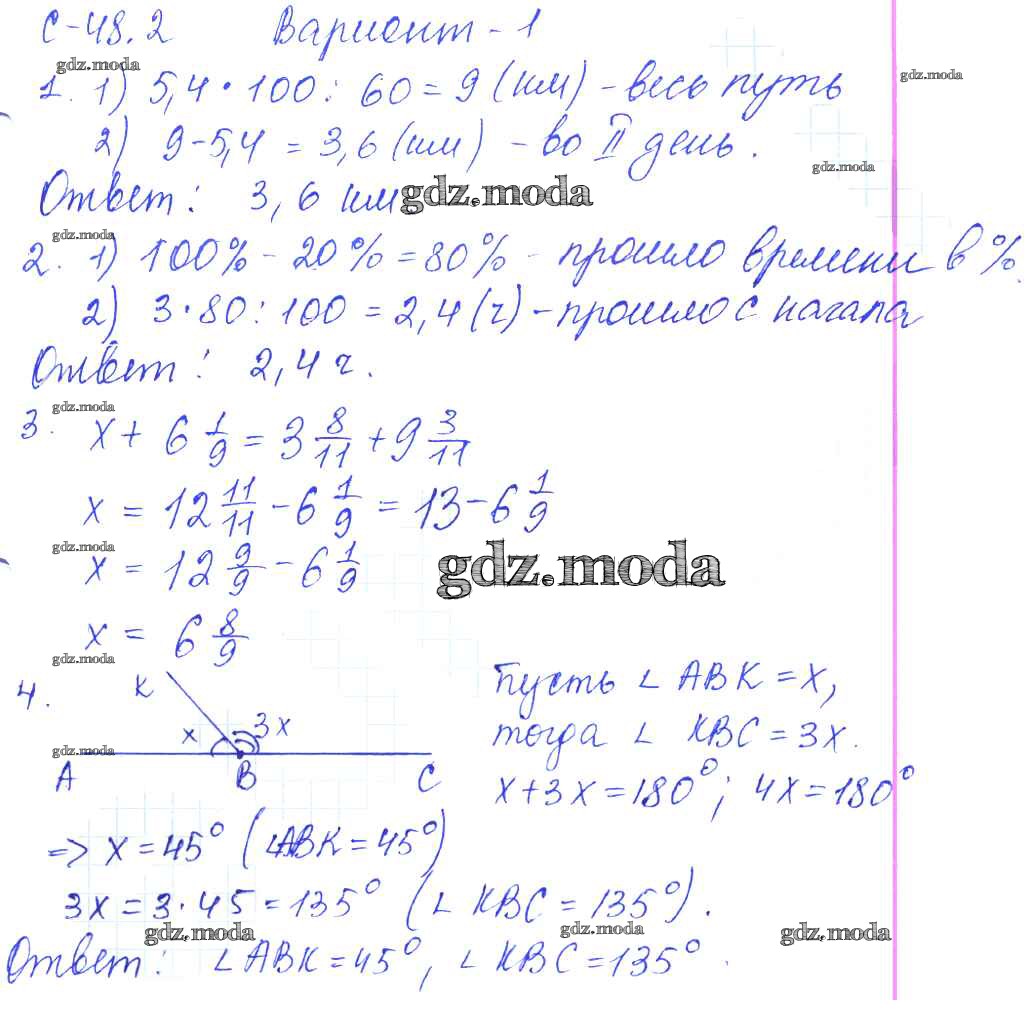 С-48.2 Вариант - 1
gdz.moda
1. 1) 5,4 • 100 : 60 = 9 (км) - весь путь
gdz.moda
2) 9 - 5,4 = 3,6 (км) - во II день.
gdz.moda
Ответ: 3,6 км
gdz.moda
gdz.moda
2. 1) 100% - 20% = 80% - прошло времени в %
2) 3 • 80 : 100 = 2,4 (ч) - прошло с начала
Ответ: 2,4 ч.
gdz.moda
3. x + 6 1/9 = 3 8/11 + 9 3/11
x = 12 11/11 - 6 1/9 = 13 - 6 1/9
gdz.moda
gdz.moda
x = 12 9/9 - 6 1/9
x = 6 8/9
gdz.moda
4. K
x 3x
gdz.moda
A B C
Пусть ∠ ABK = x,
тогда ∠ KBC = 3x.
x + 3x = 180°; 4x = 180°
=> x = 45° (∠ABK = 45°)
3x = 3 • 45 = 135° (∠ KBC = 135°).
gdz.moda gdz.moda gdz.moda
Ответ: ∠ ABK = 45°, ∠ KBC = 135°.